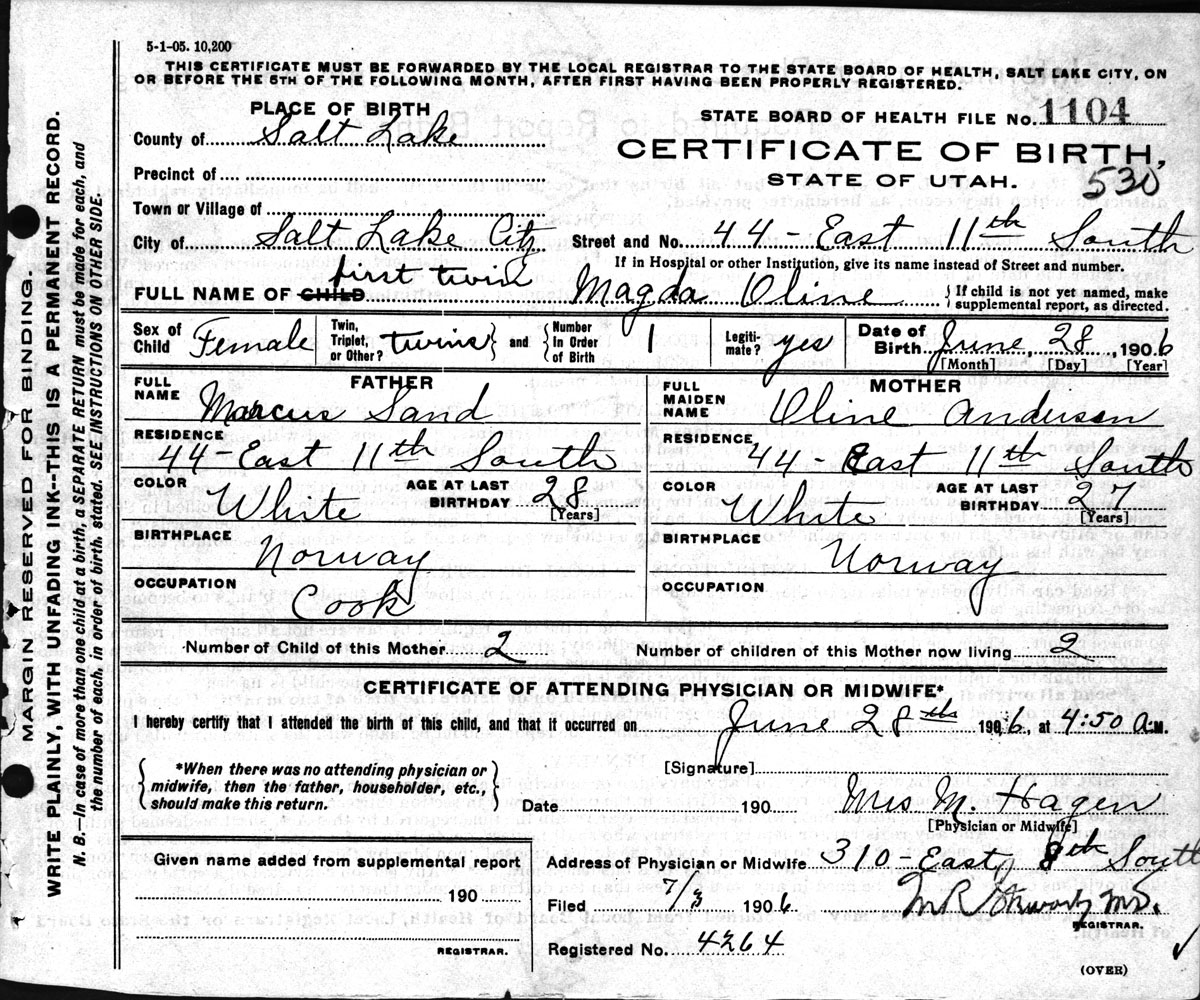 5-1-05. 10,200
THIS CERTIFICATE MUST BE FORWARDED BY THE LOCAL REGISTRAR TO THE STATE BOARD OF HEALTH, SALT LAKE CITY, ON
OR BEFORE THE 5TH OF THE FOLLOWING MONTH, AFTER FIRST HAVING BEEN PROPERLY REGISTERED.
PLACE OF BIRTH
STATE BOARD OF HEALTH FILE No. 1104
County of Salt Lake
CERTIFICATE OF BIRTH,
STATE OF UTAH. 530
Precinct of
Town or Village of
City of Salt Lake City Street and No. 44-East 11th South
If in Hospital or other Institution, give its name instead of Street and number.
first twin
FULL NAME OF CHILD Magda Oline { If child is not yet named, make supplemental report, as directed.
Sex of Child Female Twin, Triplet, or Other? twins } and { Number in Order of Birth 1 Legiti-mate? yes Date of Birth June, 28, 1906
[Month] [Day] [Year]
FATHER
FULL NAME Marcus Sand
RESIDENCE 44-East 11th South
COLOR White AGE AT LAST BIRTHDAY 28 [Years]
BIRTHPLACE Norway
OCCUPATION Cook
MOTHER
FULL MAIDEN NAME Oline Andersen
RESIDENCE 44 East 11th South
COLOR White AGE AT LAST BIRTHDAY 27 [Years]
BIRTHPLACE Norway
OCCUPATION
Number of Child of this Mother 2 Number of children of this Mother now living 2
CERTIFICATE OF ATTENDING PHYSICIAN OR MIDWIFE*
I hereby certify that I attended the birth of this child, and that it occurred on June 28th 1906, at 4:50 A.M.
{ *When there was no attending physician or midwife, then the father, householder, etc., should make this return. }
[Signature]
Date 190 Mrs M. Hagen
[Physician or Midwife]
Given name added from supplemental report
190
REGISTRAR.
Address of Physician or Midwife 310-East 8th South
Filed 7/3 1906
REGISTRAR.
Registered No. 4264
(OVER)
MARGIN RESERVED FOR BINDING.
WRITE PLAINLY, WITH UNFADING INK--THIS IS A PERMANENT RECORD.
N. B.—In case of more than one child at a birth, a SEPARATE RETURN must be made for each, and
the number of each, in order of birth, stated. SEE INSTRUCTIONS ON OTHER SIDE.